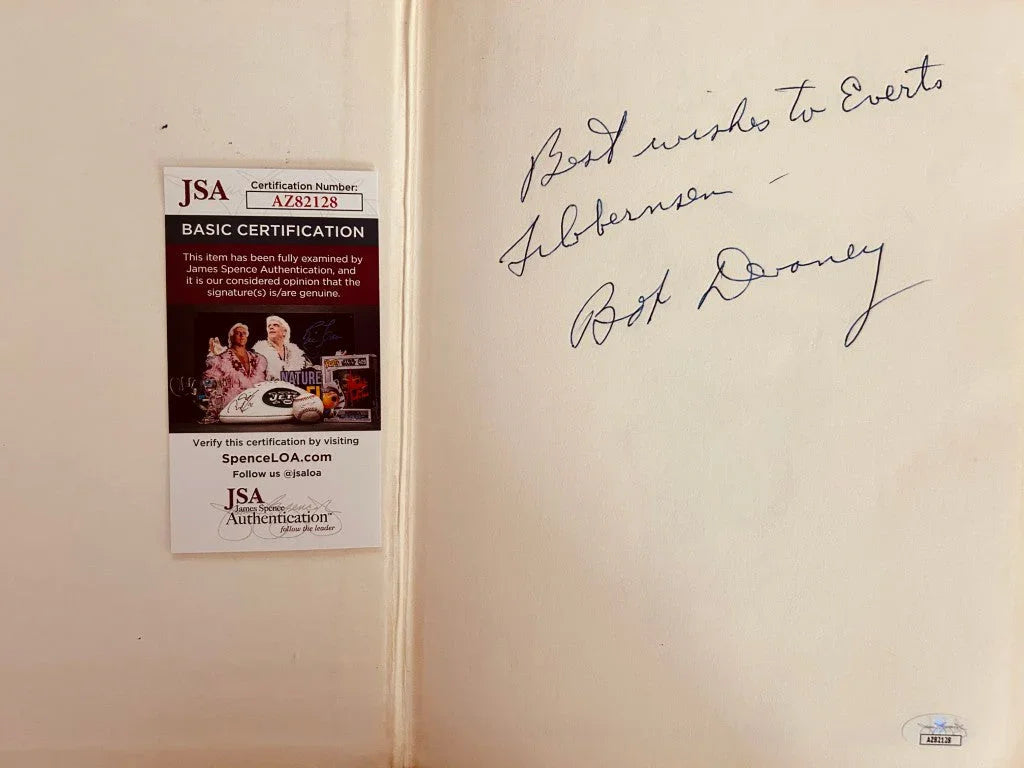 JSA
Certification Number:
AZ82128
BASIC CERTIFICATION
This item has been fully examined by
James Spence Authentication, and
it is our considered opinion that the
signature(s) is/are genuine.
NATURE
JETS
Verify this certification by visiting
SpenceLOA.com
Follow us @jsaloa
JSA
James Spence
Authentication™
follow the leader
Best wishes to Everts
Bob Devaney
AZ82128